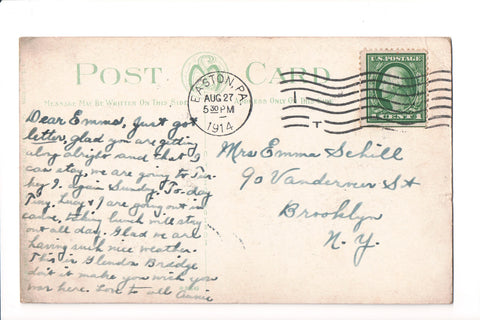 POST CARD
MESSAGE MAY BE WRITTEN ON THIS SIDE
ADDRESS ONLY ON THIS SIDE
EASTON, PA.
AUG 27
5 30 PM
1914
1
T
U.S. POSTAGE
1 CENT 1
Dear Emma, Just got
letter, glad you are getting
along alright and that I
can stay, we are going to
again Sunday. To-day
Tiny, Lucy & I are going out in
canoe, taking lunch will stay
out all day. Glad we are
having such nice weather.
This is Glendon Bridge
don't it make you wish you
was here. Love to all Annie
Mrs Emma Schill
90 Vanderveer St
Brooklyn
N. Y.